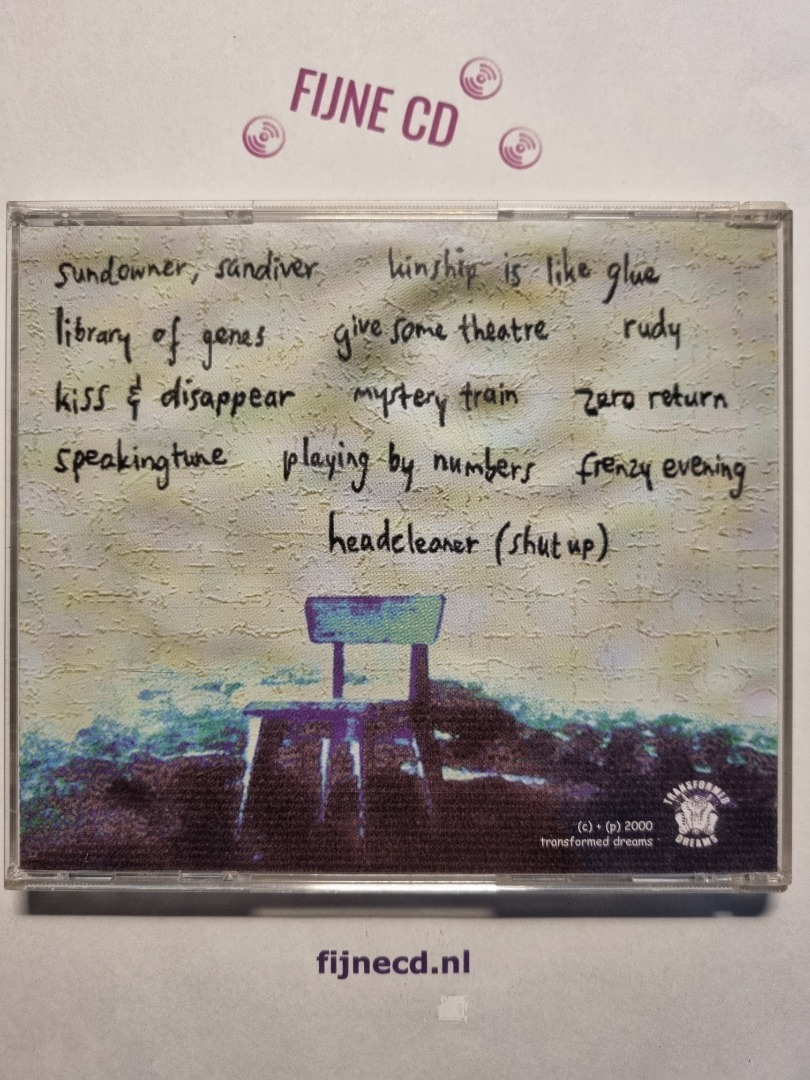 FIJNE CD
sundowner, sandiver kinship is like glue
library of genes give some theatre rudy
kiss & disappear mystery train zero return
speakingtune playing by numbers frenzy evening
headcleaner (shut up)
(c) + (p) 2000
transformed dreams
TRANSFORMED
DREAMS
fijnecd.nl